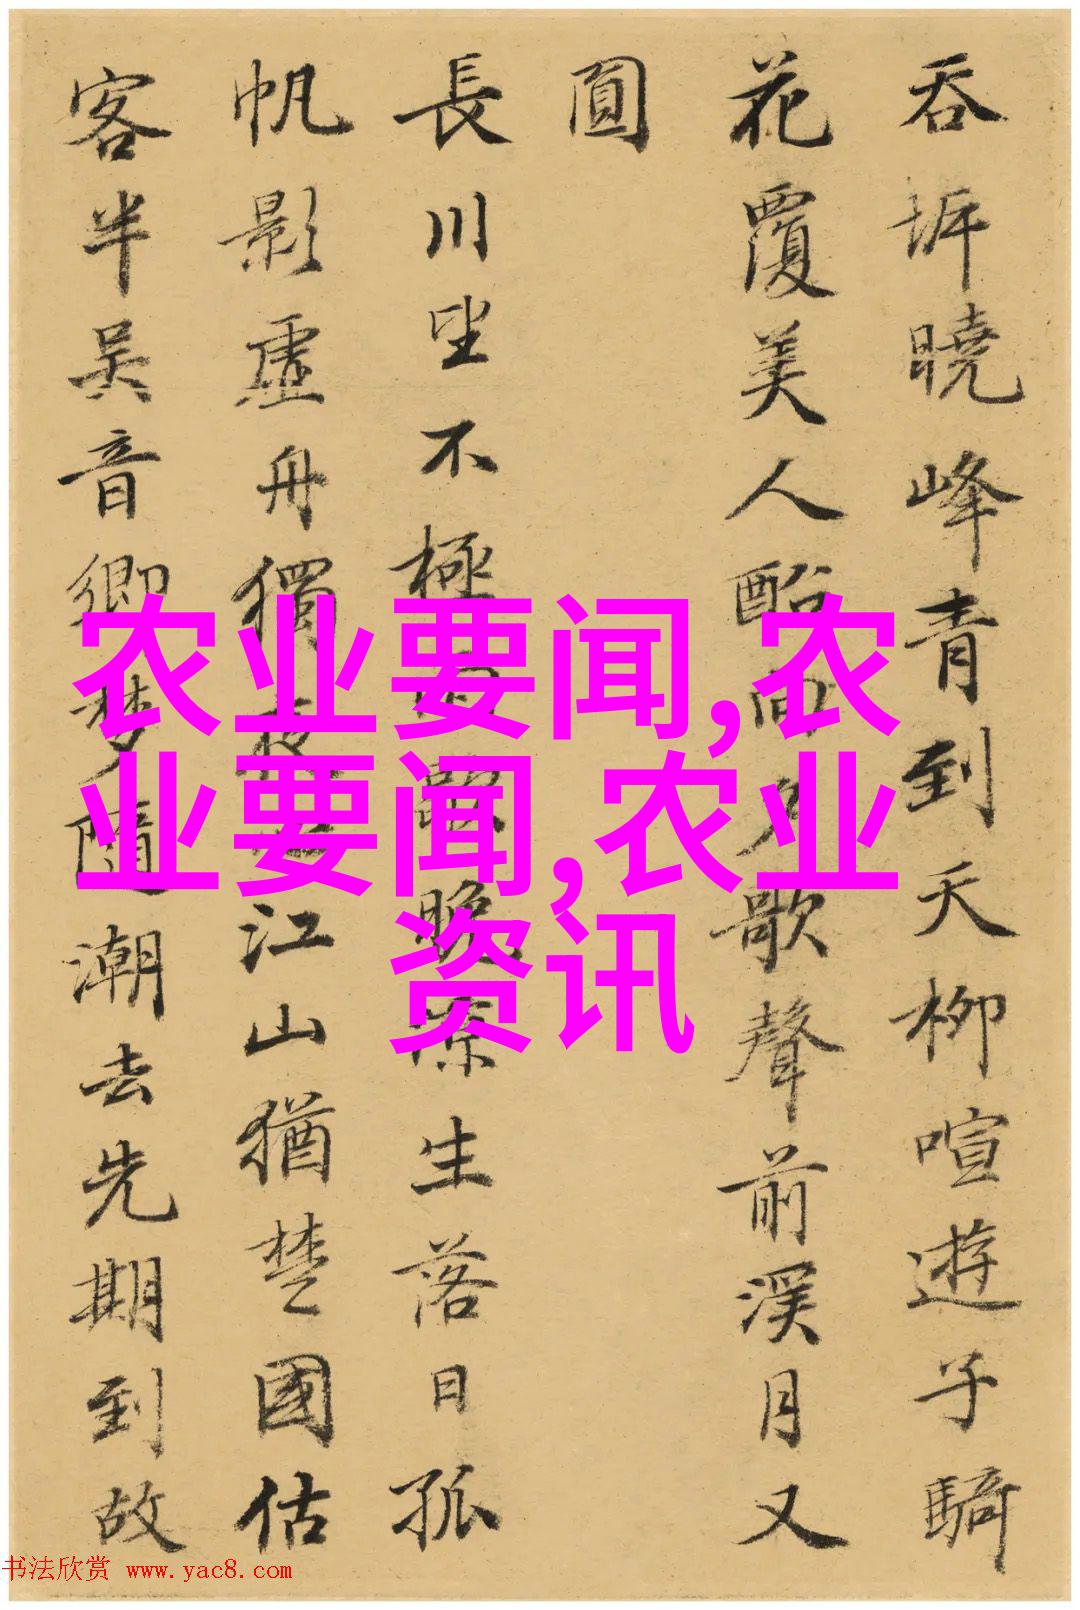 吞坼曉峰青到天柳喧遊子騎
花覆美人酩面夕歌聲前溪月又
圓
長川坐不極晚凉生落日孤
帆影虛舟獨夜江山猶楚國估
客半吴音鄉梦隨潮去先期到故
农业要闻,农
业要闻,农业
资讯
书法欣赏 www.yac8.com